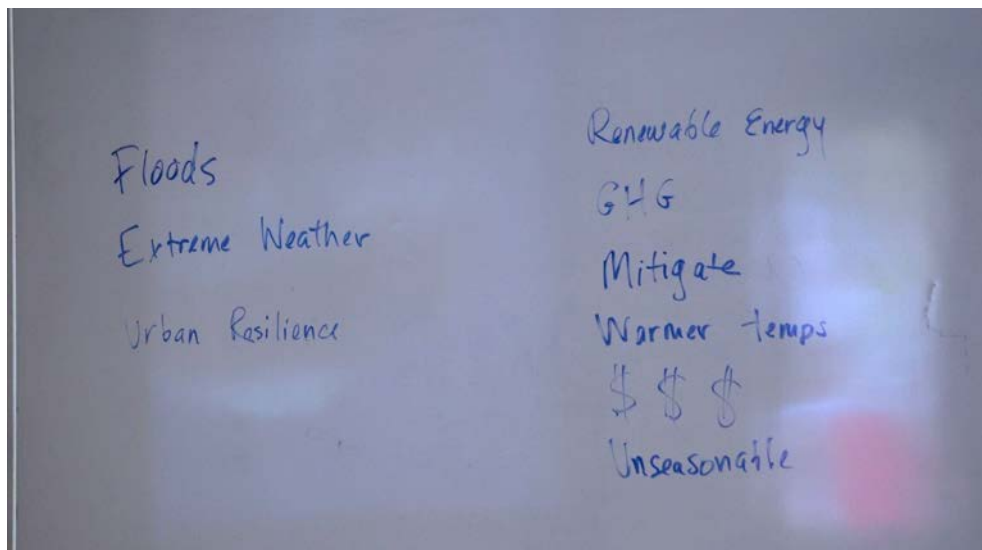 Floods
Extreme Weather
Urban Resilience
Renewable Energy
GHG
Mitigate
Warmer temps
$ $ $
Unseasonable